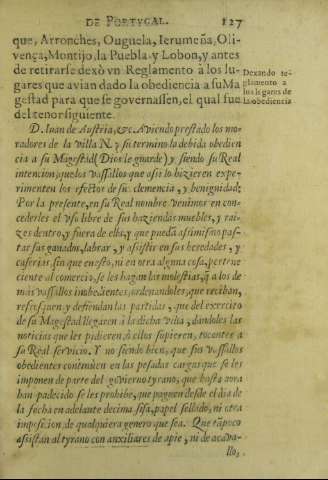 DE PORTVGAL. 127
que, Arronches, Ouguela, Ierumeña, Oli-
vença, Montijo, la Puebla y Lobon, y antes
de retirarse dexò vn Reglamento à los lu-
gares que avian dado la obediencia a su Ma
gestad para que se governassen, el qual fue
del tenor siguiente.
Dexando re-
glamento a
los lugares de
la obediencia
D. Iuan de Austria, &c. Aviendo prestado los mo-
radores de la villa N. y su termino la debida obedien
cia a su Magestad (Dios le guarde) y siendo su Real
intencion, que los vassallos que assi lo hizieren expe-
rimenten los efectos de su clemencia, y benignidad;
Por la presente, en su Real nombre venimos en con-
cederles el vso libre de sus haziendas muebles, y rai-
zes dentro, y fuera de ella, y que puedã assimismo pas-
tar sus ganados, labrar, y assistir en sus heredades, y
caserias, sin que en esto, ni en otra alguna cosa, pertene
ciente al comercio, se les hagan las molestias, q̃ a los de
mas vassallos inobedientes, ordenandoles, que reciban,
refresquen y defiendan las partidas, que del exercito
de su Magestad llegaren à la dicha villa, dandoles las
noticias que les pidieren, ò ellos supieren, tocantes a
su Real servicio. Y no siendo bien, que sus vassallos
obedientes continuen en las pesadas cargas que se les
imponen de parte del govierno tyrano, que hasta aora
han padecido se les prohibe, que paguen desde el dia de
la fecha en adelante decima sisa, papel sellado, ni otra
imposicion, de qualquiera genero que sea. Que tãpoco
assistan al tyrano con auxiliares de apie, ni de acava-
llo,